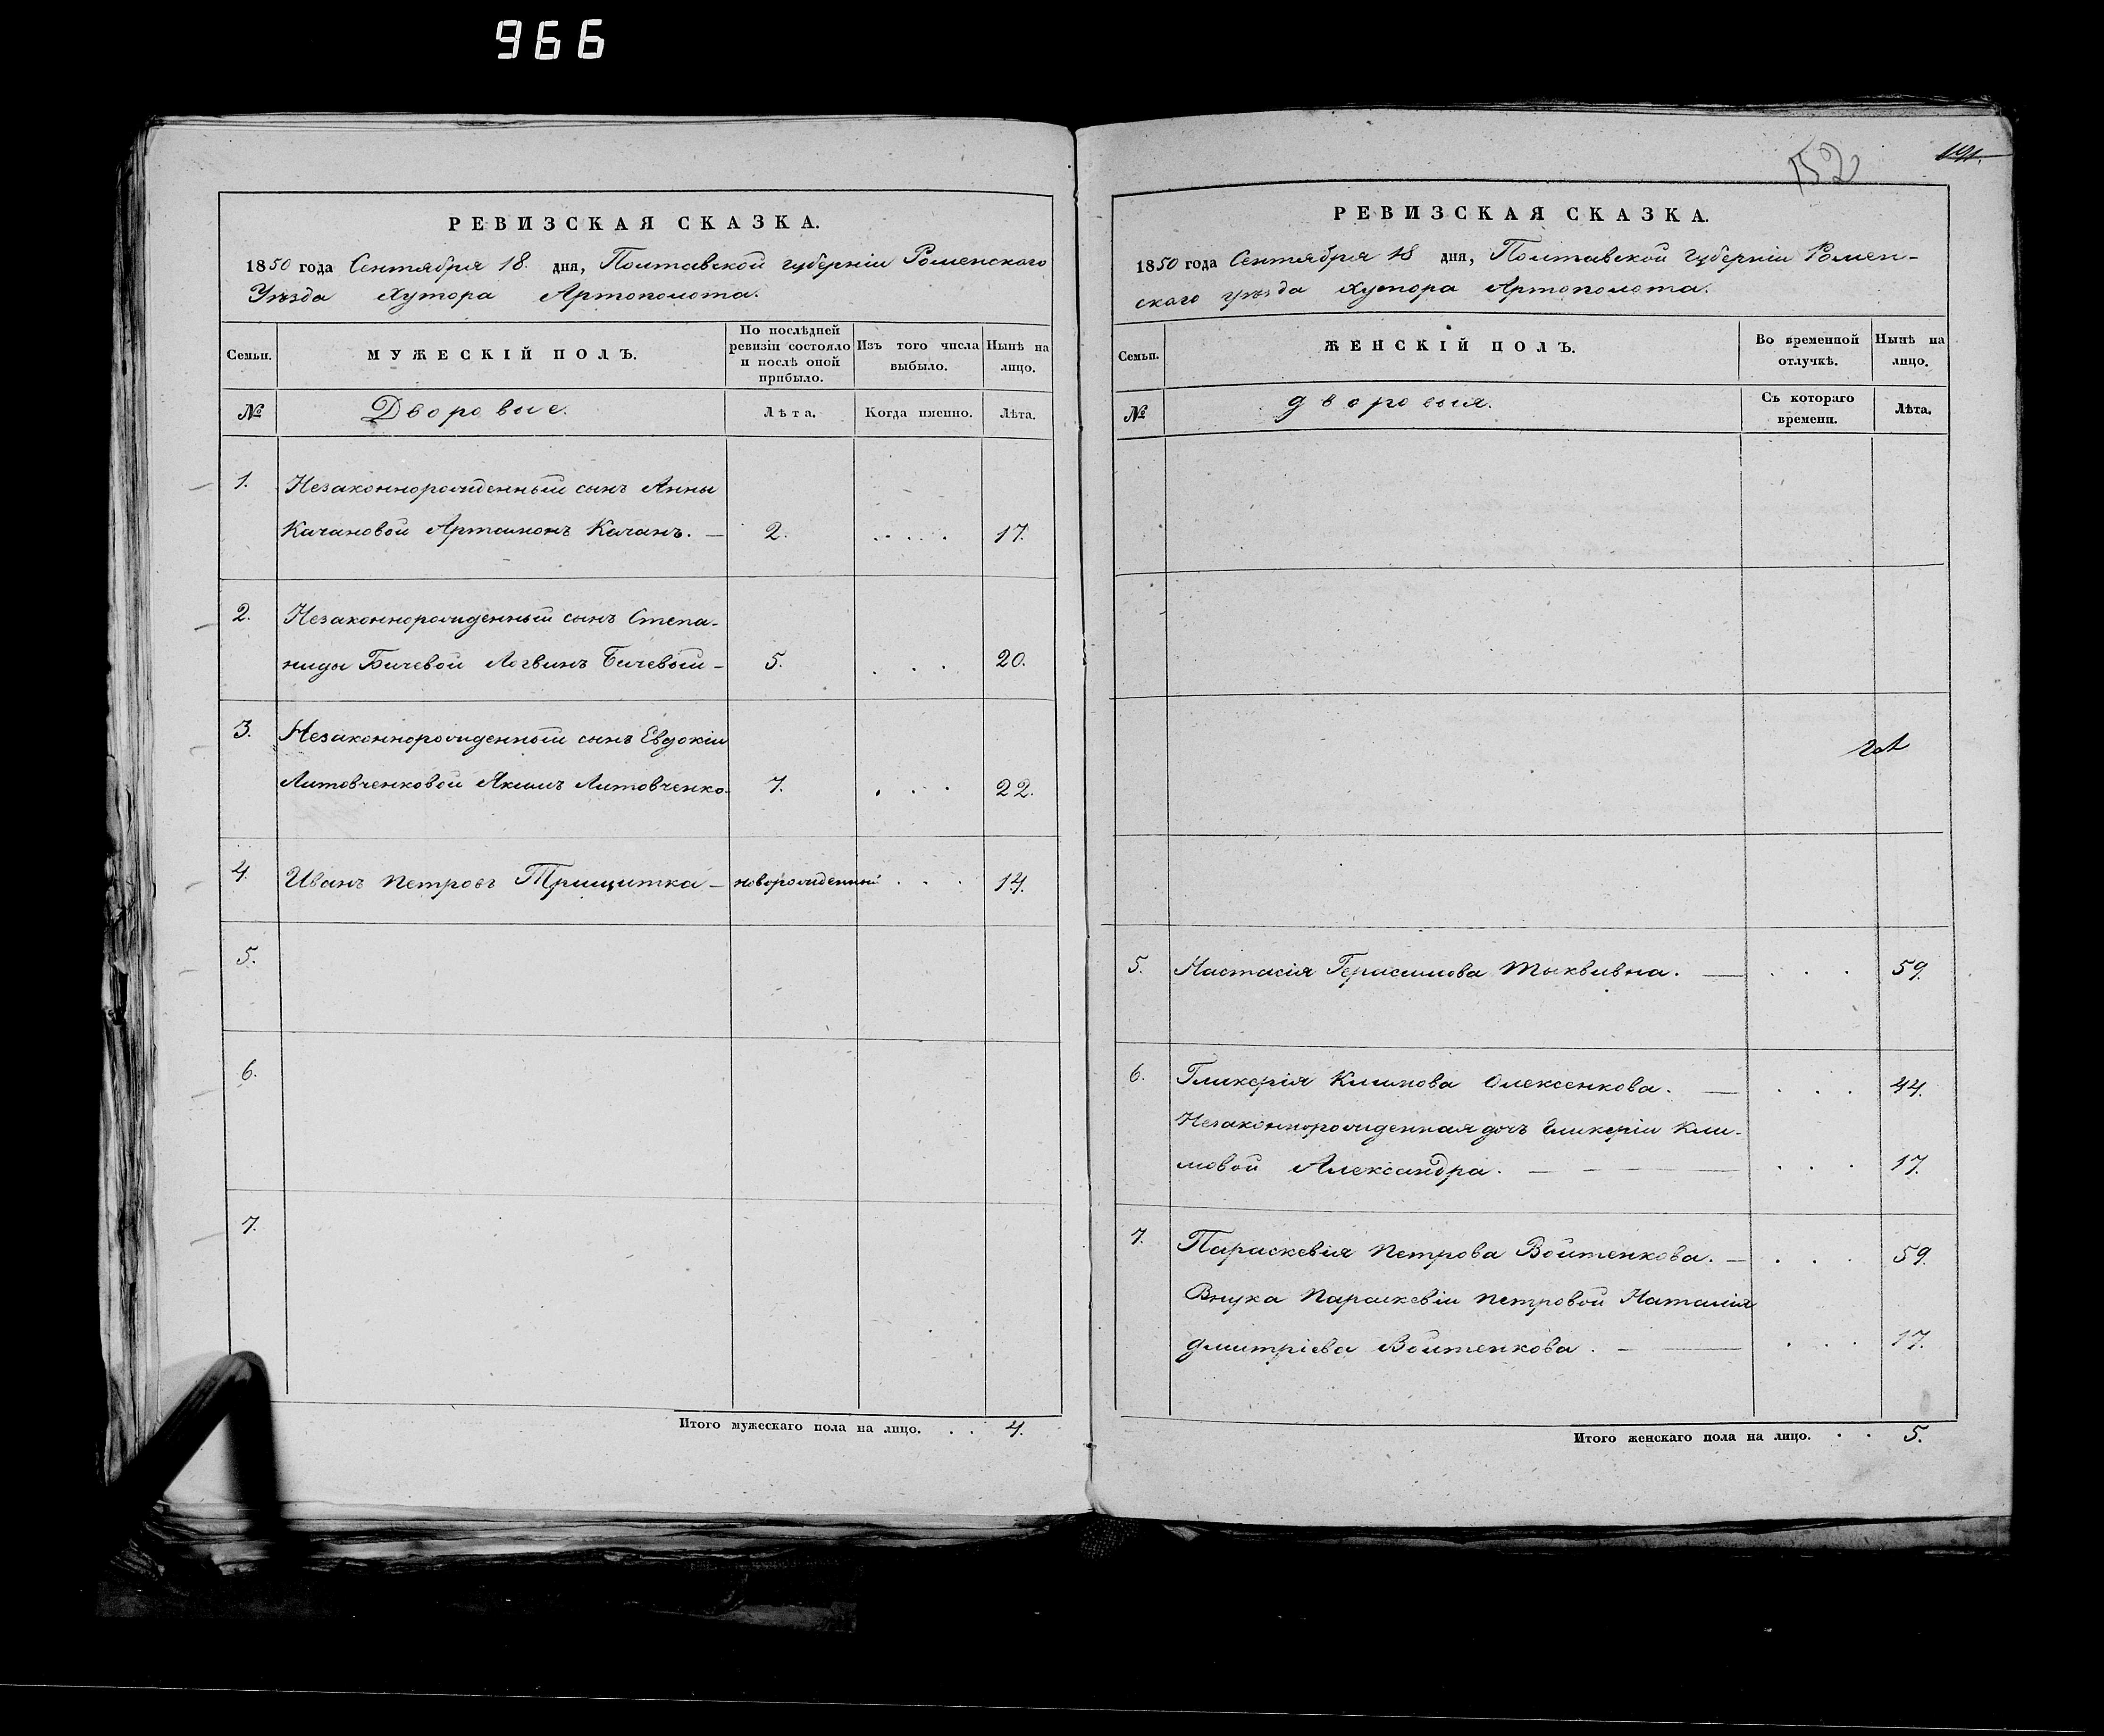 966
52
РЕВИЗСКАЯ СКАЗКА.
1850 года Сентября 18. дня, Полтавской губерніи Роменского
Уѣзда Хутора Артополота.
Семьи.
МУЖЕСКІЙ ПОЛЪ.
По послѣдней
ревизіи состояло
и послѣ оной
прибыло.
Изъ того числа
выбыло.
Нынѣ на
лицо.
№
Дворовые.
Лѣта.
Когда именно.
Лѣта.
1. Незаконнорожденный сынъ Анны
Качановой Артамонъ Качанъ. — 2. ..... 17.
2. Незаконнорожденный сынъ Степа-
ниды Бичевой Логвинъ Бичевый - 5. . . . 20.
3. Незаконнорожденный сынъ Евдокіи
Литовченковой Якимъ Литовченко. 7. . . . 22.
4. Иванъ Петровъ Трищитка - новорожденный . . . 14.
5.
6.
7.
Итого мужескаго пола на лицо. . . 4.
РЕВИЗСКАЯ СКАЗКА.
1850 года Сентября 18 дня, Полтавской Губерніи Ромен-
скаго уѣзда Хутора Артополота.
Семьи.
ЖЕНСКІЙ ПОЛЪ.
Во временной
отлучкѣ.
Нынѣ на
лицо.
№
дворовыя.
Съ котораго
времени.
Лѣта.
5. Настасія Герасимова Тыквивна. — . . . 59.
6. Гликерія Климова Олексенкова. — . . . 44.
Незаконнорожденная дочь Гликеріи Кли-
мовой Александра. — — — . . . 17.
7. Параскевія Петрова Войтенкова. — . . . 59.
Внука Параскевіи Петровой Наталія
Дмитріева Войтенкова. — . . . 17.
Итого женскаго пола на лицо. . . 5.